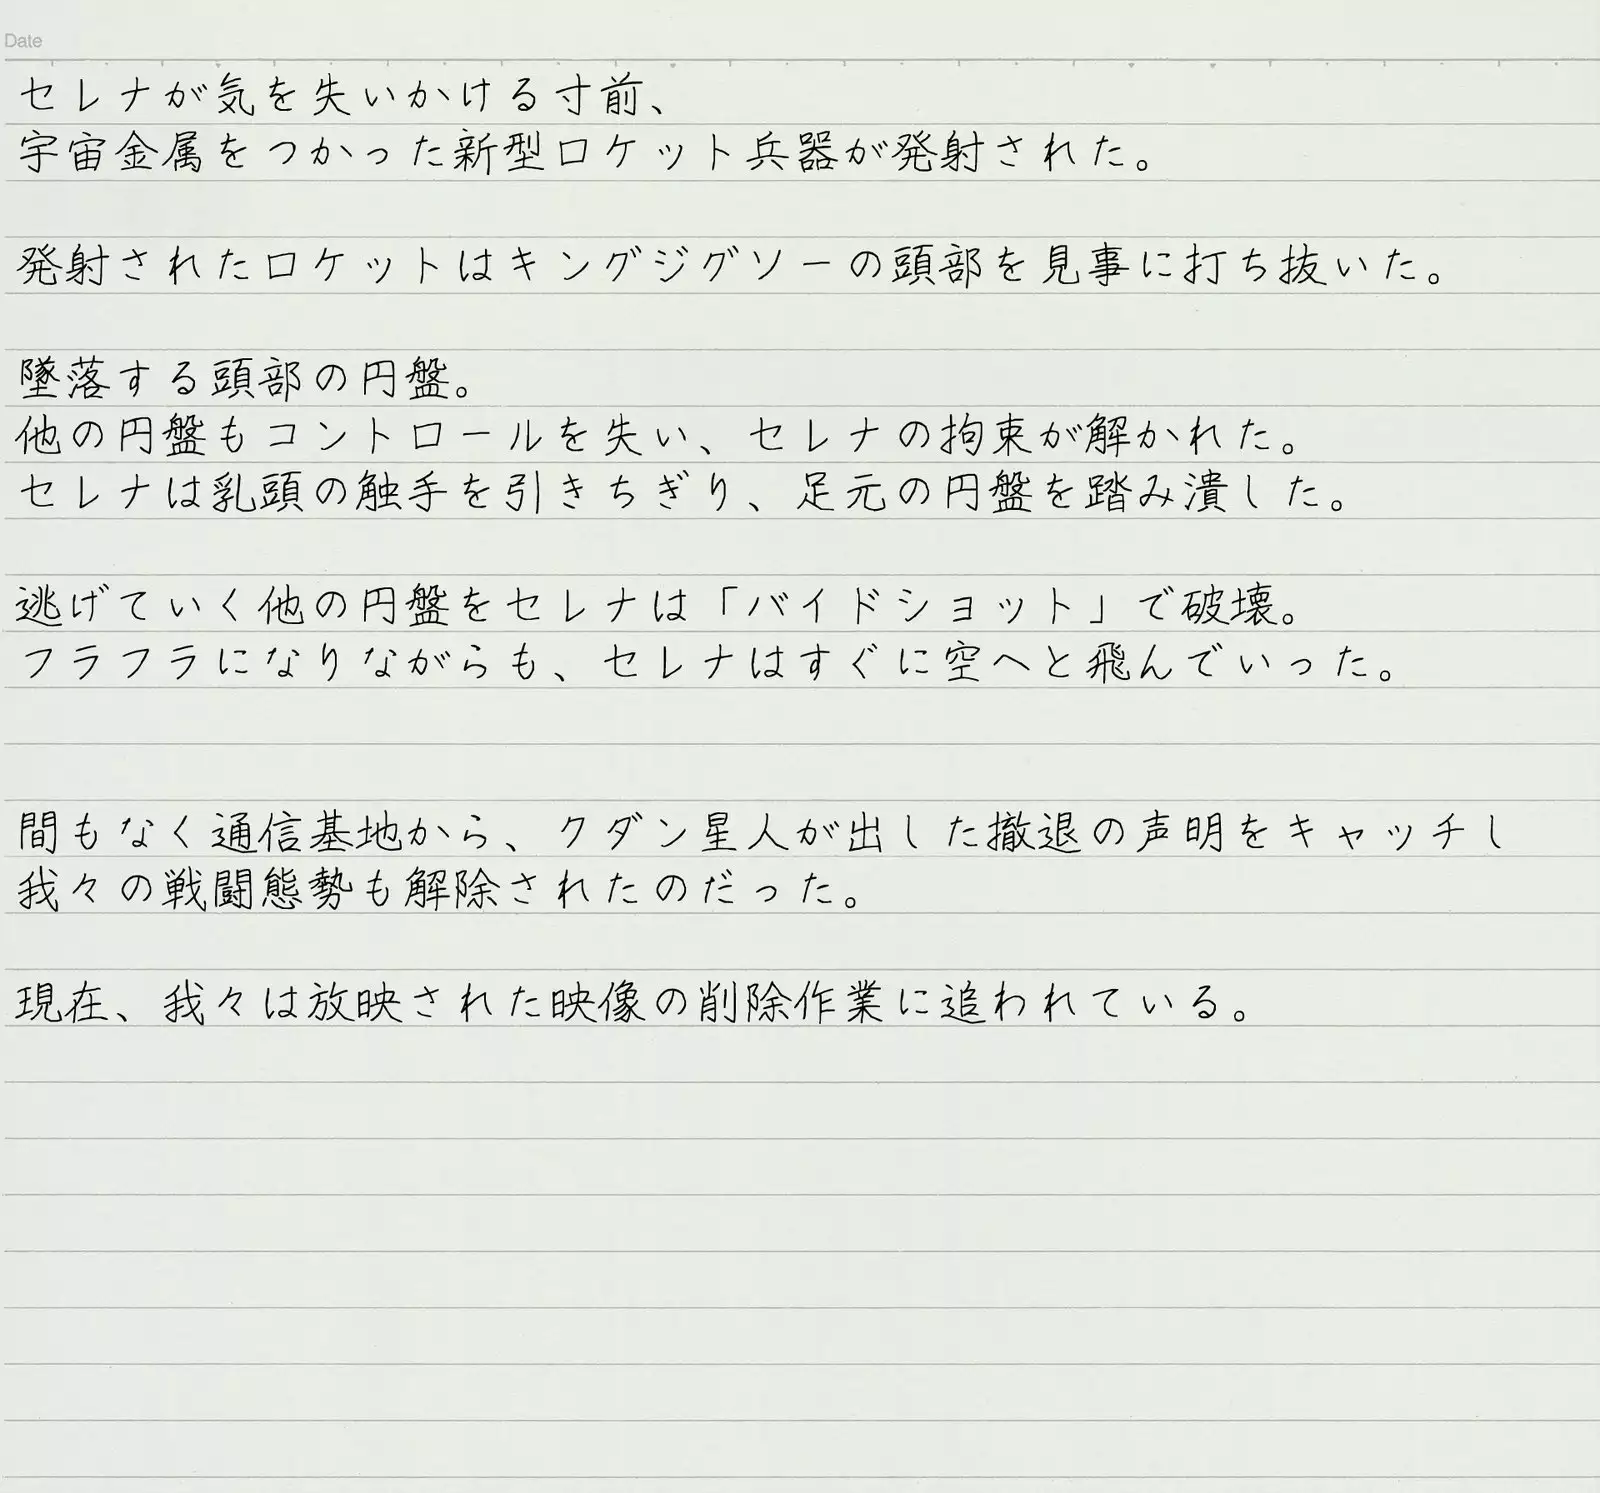 Date
セレナが気を失いかける寸前、
宇宙金属をつかった新型ロケット兵器が発射された。
発射されたロケットはキングジグソーの頭部を見事に打ち抜いた。
墜落する頭部の円盤。
他の円盤もコントロールを失い、セレナの拘束が解かれた。
セレナは乳頭の触手を引きちぎり、足元の円盤を踏み潰した。
逃げていく他の円盤をセレナは「バイドショット」で破壊。
フラフラになりながらも、セレナはすぐに空へと飛んでいった。
間もなく通信基地から、クダン星人が出した撤退の声明をキャッチし
我々の戦闘態勢も解除されたのだった。
現在、我々は放映された映像の削除作業に追われている。